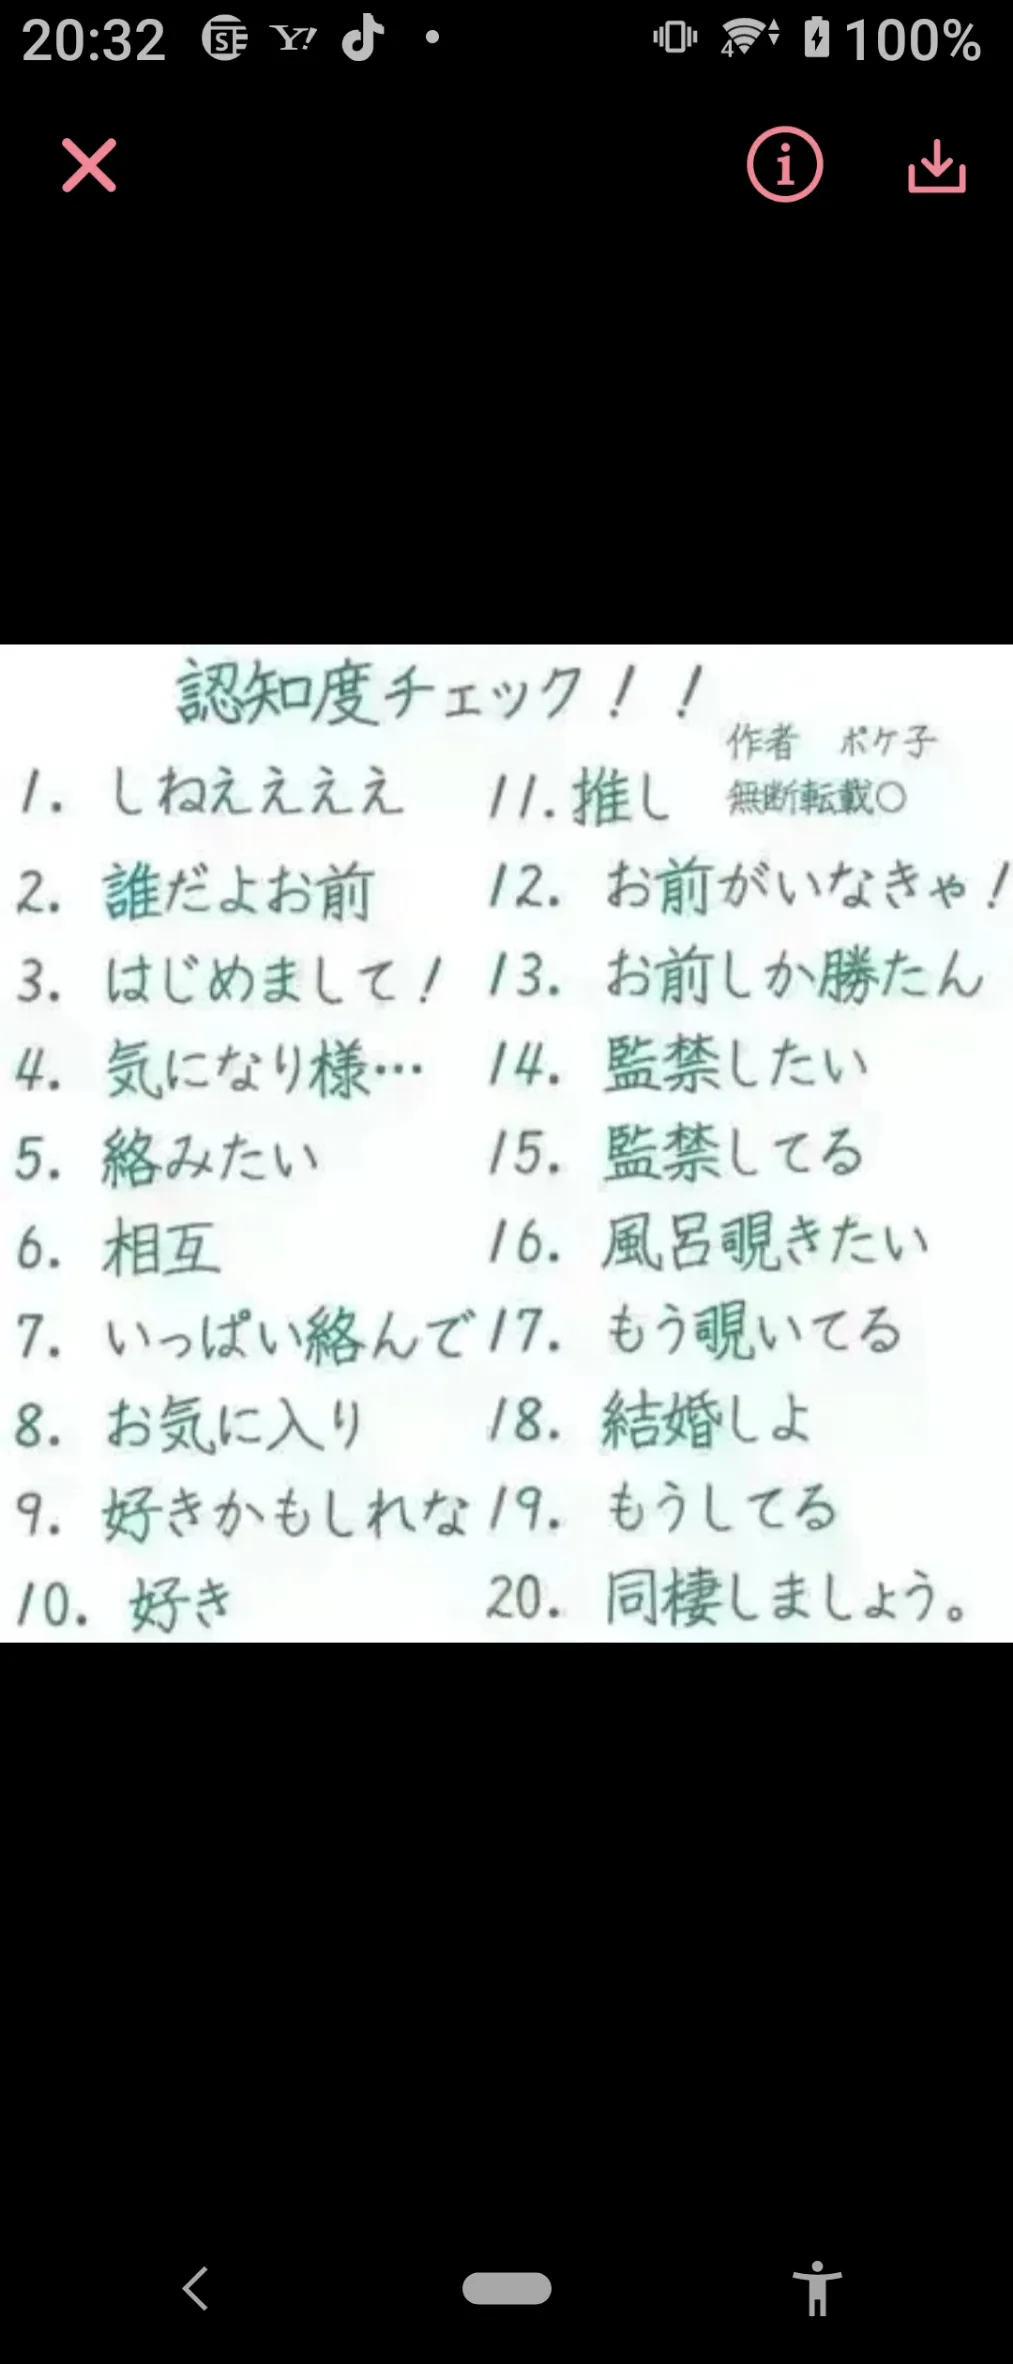 20:32
4
100%
認知度チェック！！
作者 ポケ子
無断転載〇
1. しねええええ
2. 誰だよお前
3. はじめまして！
4. 気になり様…
5. 絡みたい
6. 相互
7. いっぱい絡んで
8. お気に入り
9. 好きかもしれな
10. 好き
11. 推し
12. お前がいなきゃ！
13. お前しか勝たん
14. 監禁したい
15. 監禁してる
16. 風呂覗きたい
17. もう覗いてる
18. 結婚しよ
19. もうしてる
20. 同棲しましょう。